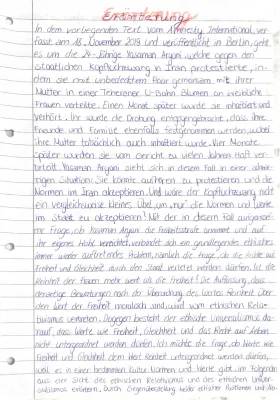 Erörterung
In dem vorliegenden Text vom Amnesty International, ver-
fasst am 18. Dezember 2019 und veröffentlicht in Berlin, geht
es um die 24-jährige Yasaman Aryani welche gegen den
staatlichen Kopftuchzwang in Iran protestierte, in
dem sie mit unbedecktem Haar gemeinsam mit ihrer
Mutter in einer Teheraner U-Bahn Blumen an weibliche
Frauen verteilte. Einen Monat später wurde sie inhaftiert und
verhört. Ihr wurde die Drohung entgegengebracht, dass ihre
Freunde und Familie ebenfalls festgenommen werden, wobei
ihre Mutter tatsächlich auch inhaftiert wurde. Vier Monate
später wurden sie vom Gericht zu vielen Jahren Haft ver-
urteilt. Yasaman Aryani sieht sich in diesem Fall in einer
Situation: Sie könnte aufhören zu protestieren und die
Normen im Iran akzeptieren. Und wäre der Kopftuchzwang nicht
ein vergleichsweise kleines Übel, um „nur" die Normen und Werte
im Staat zu akzeptieren? Mit der in diesem Fall
Frage, ob Yasaman Aryani die Freiheitsstrafe annimmt und auf
ihr eigenes Wohl verzichtet, verbindet sich ein grundlegendes ethisches
immer wieder auftretendes Problem, nämlich die Frage, ob die Rechte auf
Freiheit und Gleichheit durch den Staat verletzt werden dürfen. Ist die
der Frauen mehr wert als die Freiheit? Die Auffassung, dass
derartige Bewertungen nach der Abwägung des Wertes Reinheit über
den Wert der Freiheit moralisch sind, wird vom ethischen Relati-
vismus vertreten. Dagegen besteht der ethische Universalismus da-
rauf, dass Werte wie Freiheit, Gleichheit und das Recht auf Leben
nicht untergeordnet werden dürfen. Ich möchte die Frage, ob Werte wie
Freiheit und Gleichheit dem Wert Reinheit untergeordnet werden dürfen,
weil es in einer bestimmten Kultur Normen und Werte gibt, im Folgenden
aus der Sicht des ethischen Relativismus und des ethischen Univer-
salismus erörtern. Durch Gegenüberstellung beider ethischer Positionen und